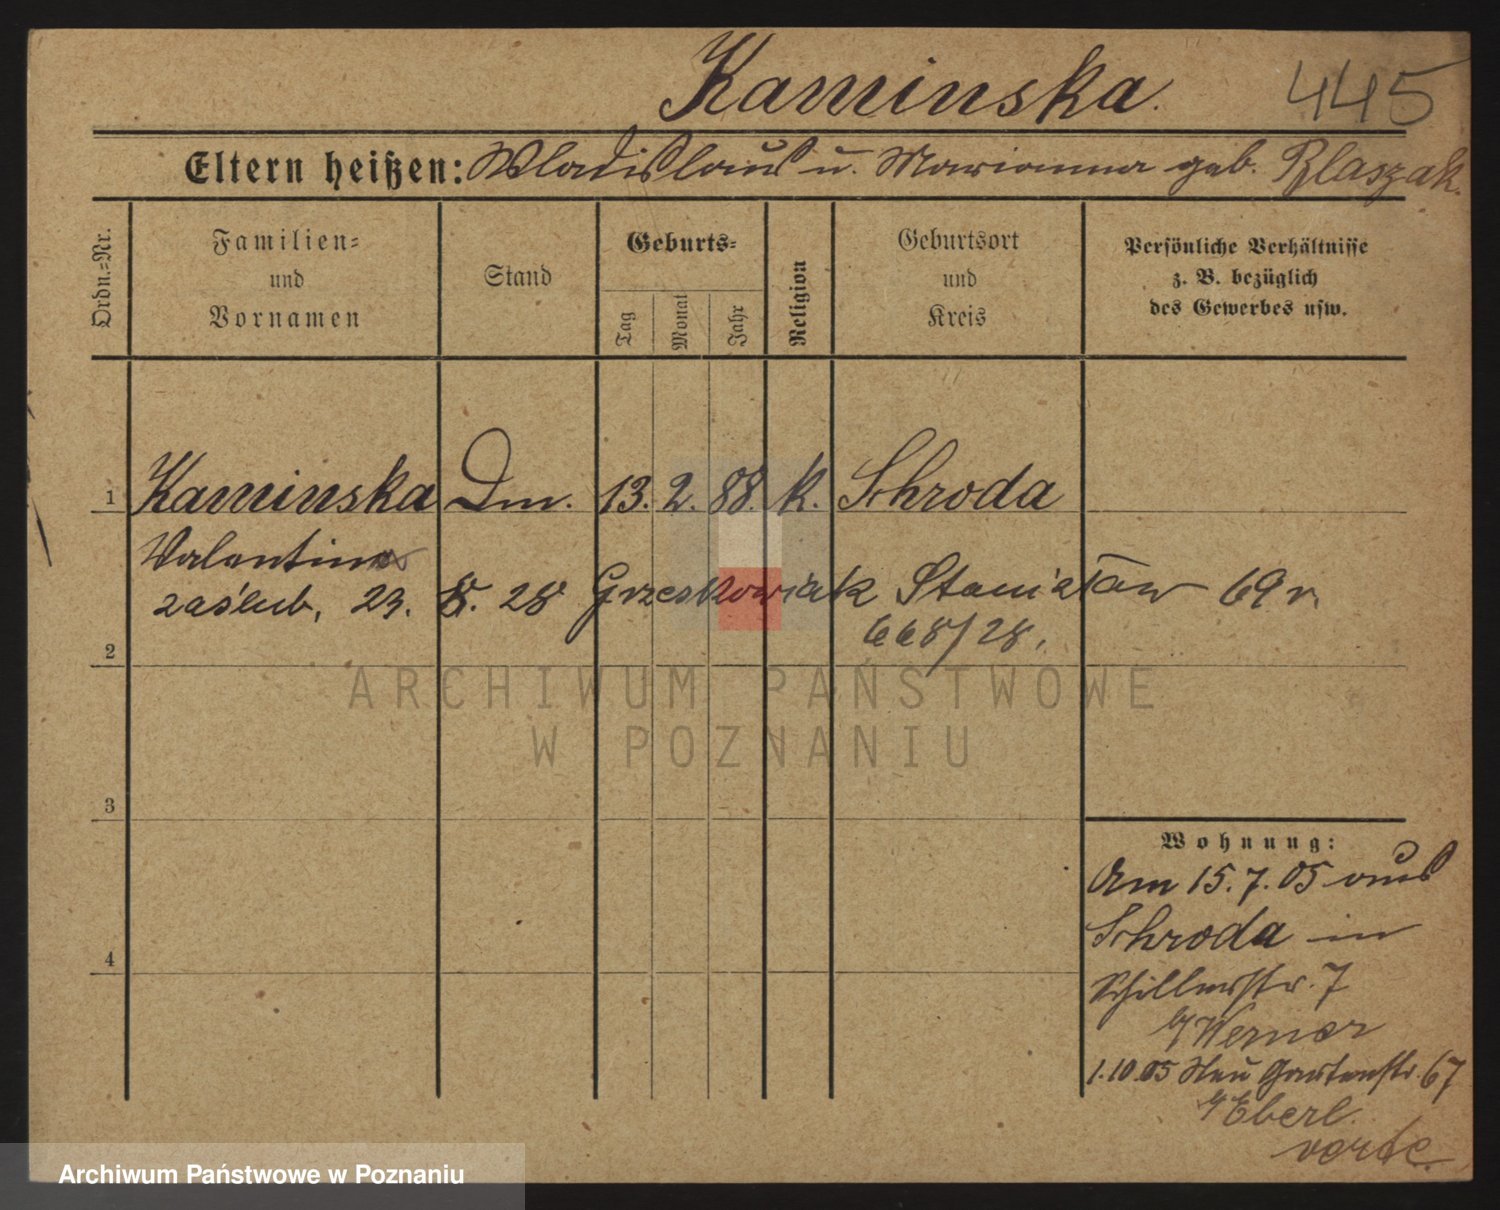 Kaminska. 445
Eltern heißen: Wladislaus u. Marianna geb. Blaszak.
Ordn.=Nr.
Familien=
und
Vornamen
Stand
Geburts=
Tag
Monat
Jahr
Religion
Geburtsort
und
Kreis
Persönliche Verhältnisse
z. B. bezüglich
des Gewerbes usw.
1 Kaminska Dm. 13. 2. 88. K. Schroda
Valentina
zaślub, 23. 8. 28 Grzeskowiak Stanisław 69 r.
668/28.
2
ARCHIWUM PAŃSTWOWE
W POZNANIU
3
Wohnung:
Am 15. 7. 05 aus
Schroda in
4
Schillerstr. 7
b/ Werner
1. 10. 05 Neu Gartenstr. 67
b/ Eberl.
verte.
Archiwum Państwowe w Poznaniu